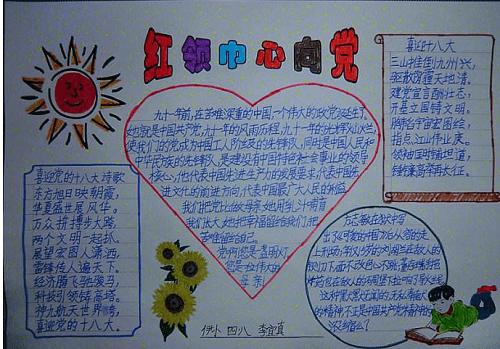 红领巾心向党
喜迎十八大
三山推倒九州兴,
驱散阴霾天地清。
建党宣言酬壮志,
开基立国铸文明。
胸怀宇宙宏图绘,
指点江山伟业成。
领袖四时铺坦道,
锤镰高举再长征。
九十一年前,在苦难深重的中国,一个伟大的政党诞生了。
她就是中国共产党,九十一年的风雨历程,九十一年的光辉灿烂,
使我们的党成为中国工人阶级的先锋队,同时是中国人民和
中华民族的先锋队,是建设有中国特色社会事业的领导
核心,他代表中国先进生产力的发展要求,代表中国先
进文化的前进方向,代表中国最广大人民的利益。
我们把党比做母亲,她用乳汁哺育
我们长大,她把幸福留给我们,把
苦难留给自己。
党啊,您是盏明灯,
您是位伟大的
母亲!
喜迎党的十八大诗歌
东方旭日映朝霞,
华夏盛世展风华。
万众拼搏步大路,
两个文明一起抓。
展望宏图人潇洒,
雷锋传人遍天下。
经济腾飞驰骏马,
科技引领铸高塔。
神九航天世界夸,
喜迎党的十八大。
方志敏在狱中写
出了《可爱的中国》
伊小 四八 李宜真